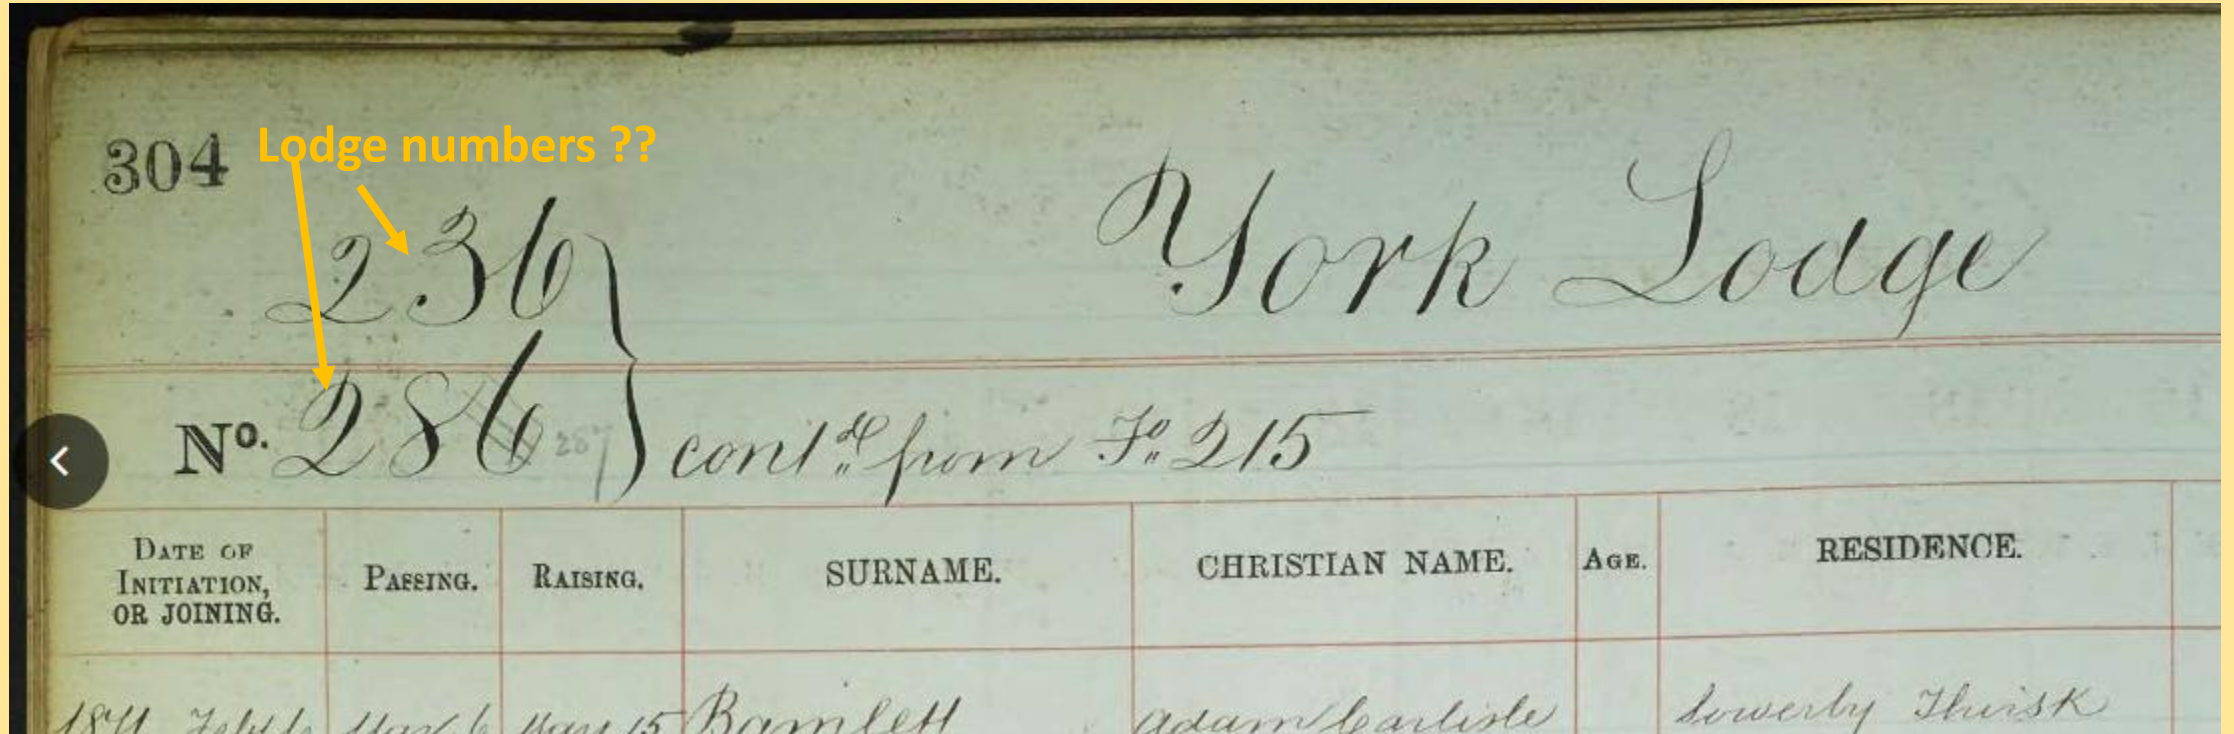 304 Lodge numbers ??
236 } York Lodge
No. 286 287 } contd from Fo 215
DATE OF INITIATION, OR JOINING. PASSING. RAISING. SURNAME. CHRISTIAN NAME. AGE. RESIDENCE.
May 15 Bamlett Adam Carlisle Sowerby Thirsk